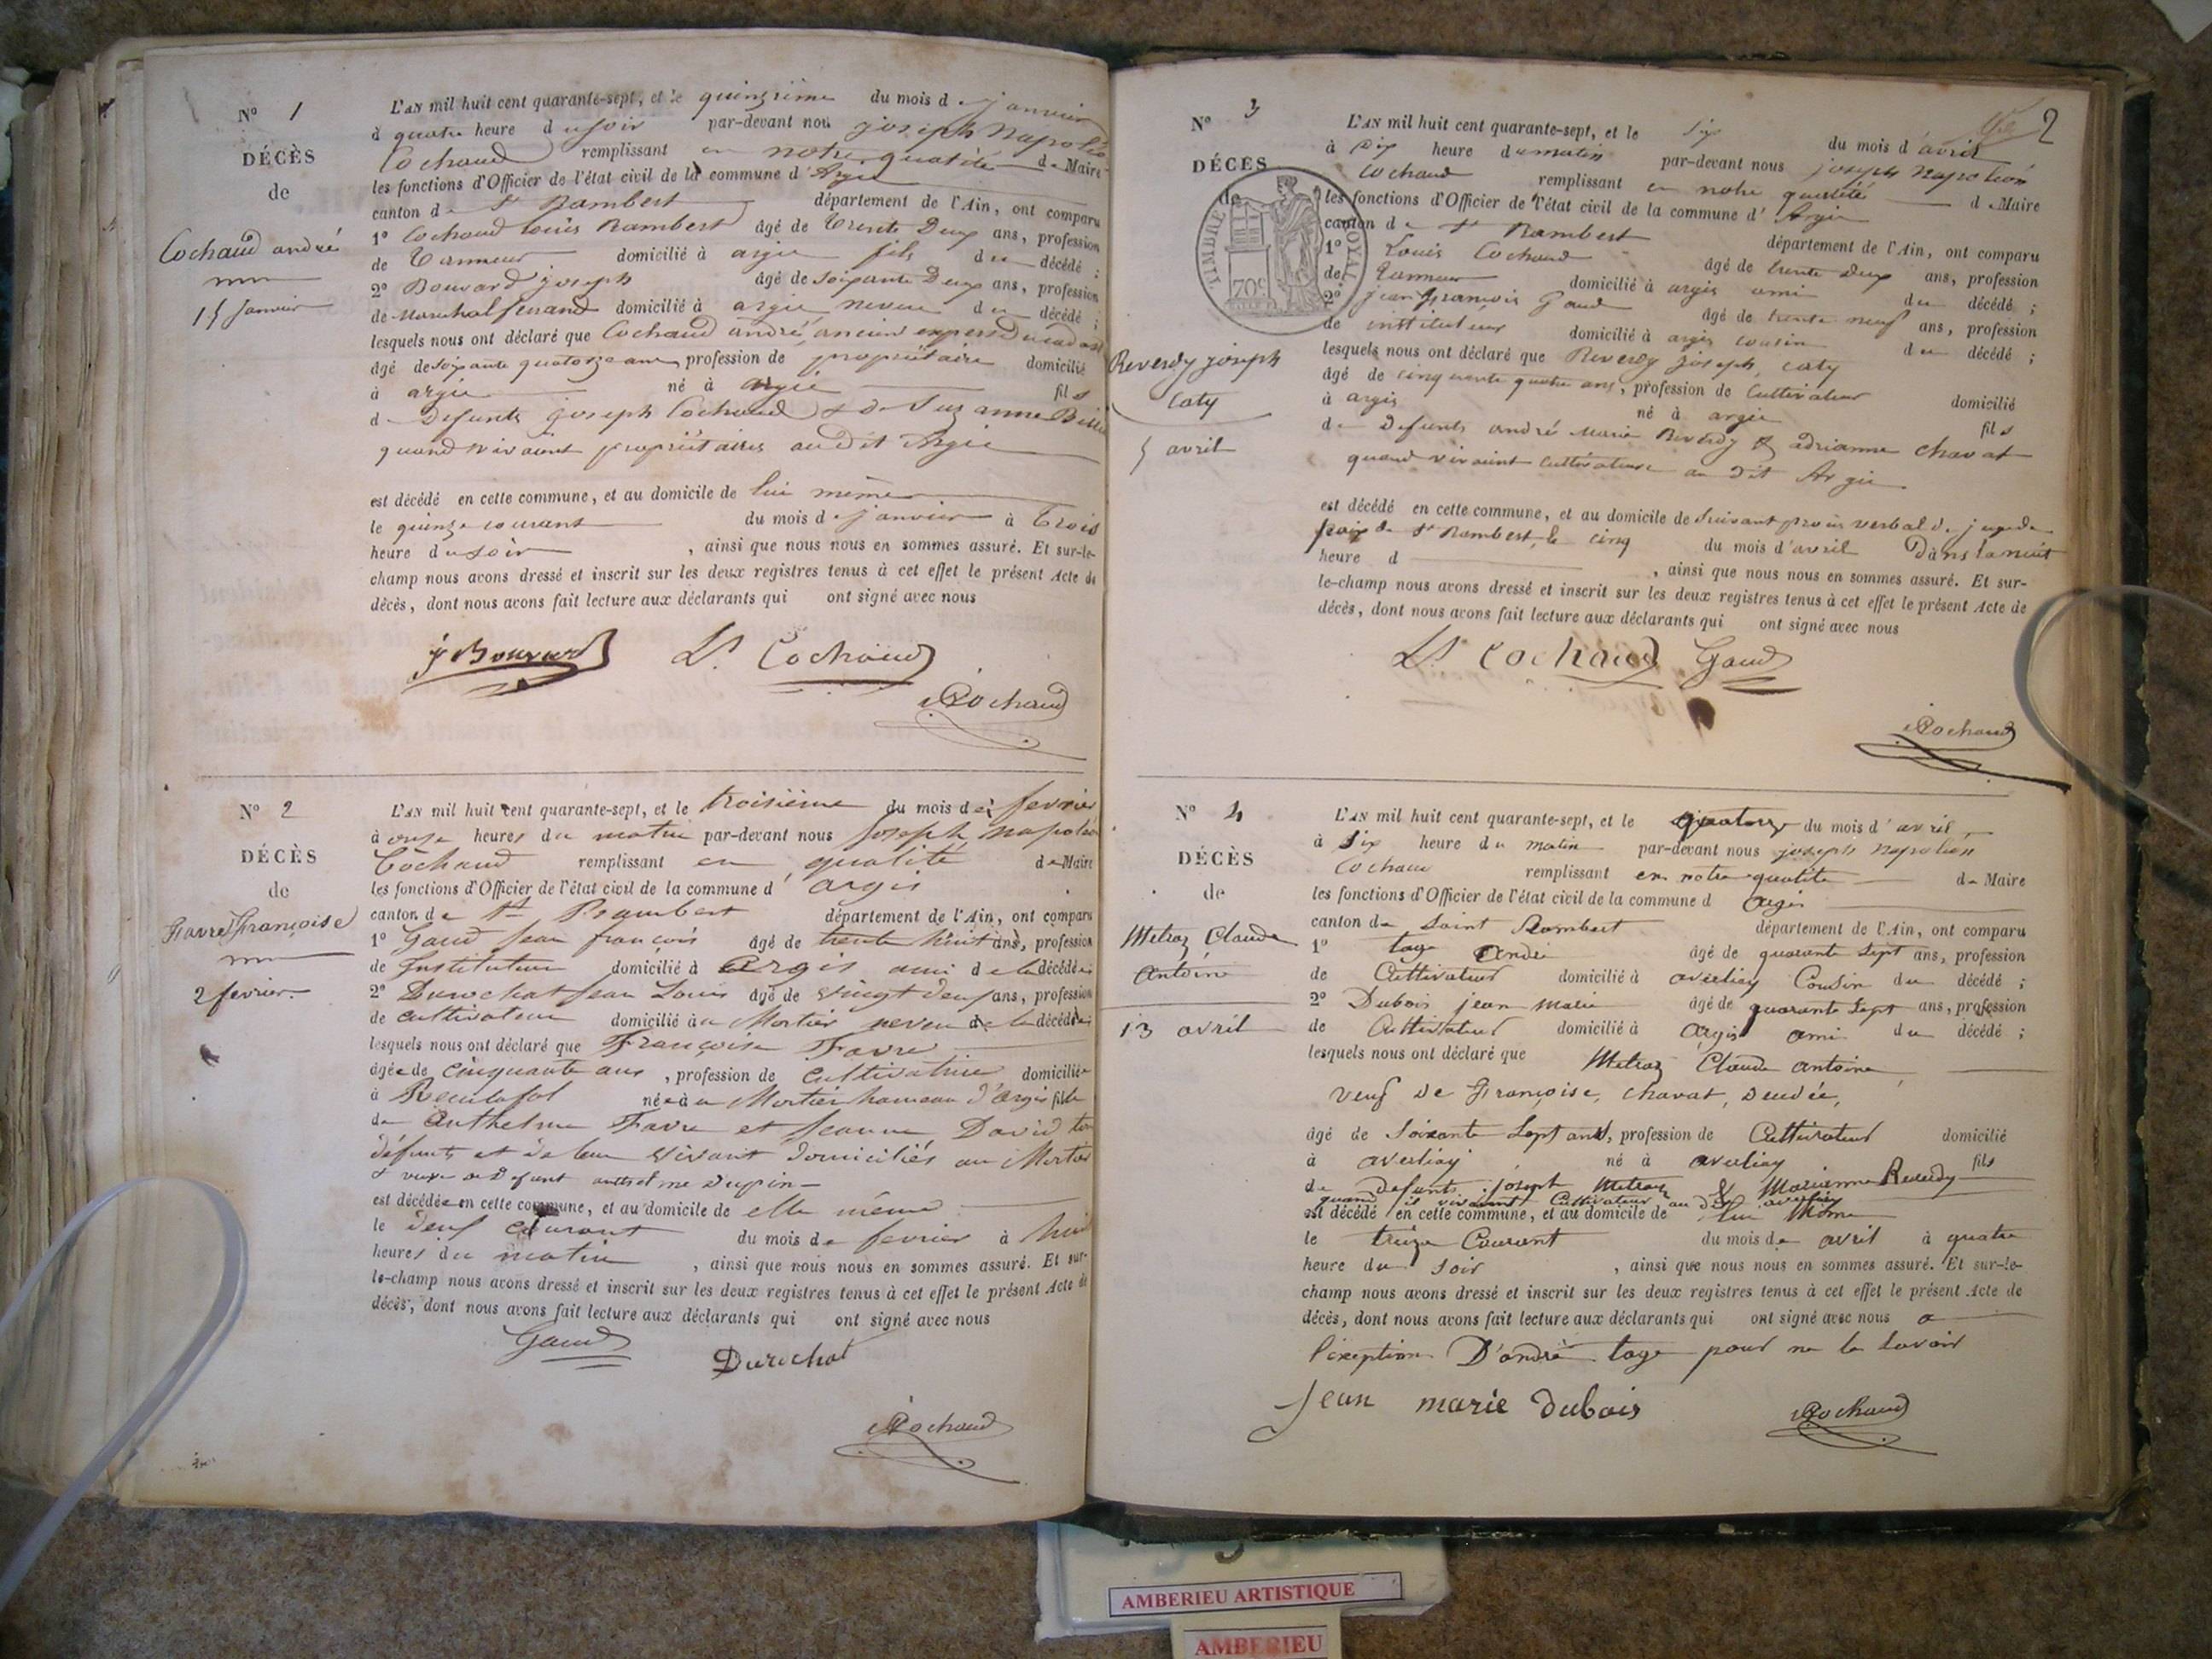 N° 1
DÉCÈS
de
Cochaud andré
15 Janvier
L'AN mil huit cent quarante-sept, et le quinzième du mois de janvier
à quatre heure du soir par-devant nou joseph Napoléo
Cochaud remplissant en notre qualité de Maire
les fonctions d'Officier de l'état civil de la commune d'Argis
canton de St Rambert département de l'Ain, ont comparu
1° Cochaud Louis Rambert âgé de trente Deux ans, profession
de Tanneur domicilié à argis fils du décédé ;
2° Bouvard joseph âgé de soixante Deux ans, profession
de Marechal ferrand domicilié à argis neveu du décédé ;
lesquels nous ont déclaré que Cochaud andré, ancien
âgé de soixante quatorze ans profession de propriétaire domicilié
à argis né à argis fils
de Defunts joseph Cochaud & de Suzanne
quand vivaient propriétaires au dit Argis
est décédé en cette commune, et au domicile de lui même
le quinze courant du mois de janvier à Trois
heure du soir , ainsi que nous nous en sommes assuré. Et sur-le-
champ nous avons dressé et inscrit sur les deux registres tenus à cet effet le présent Acte de
décès, dont nous avons fait lecture aux déclarants qui ont signé avec nous
j Bouvard Ls Cochaud
Cochaud
N° 2
DÉCÈS
de
Favre Françoise
2 fevrier
L'AN mil huit cent quarante-sept, et le troisième du mois de fevrier
à onze heures du matin par-devant nous Joseph napoléo
Cochaud remplissant en qualité de Maire
les fonctions d'Officier de l'état civil de la commune d'argis
canton de St Rambert département de l'Ain, ont comparu
1° Gaud Jean françois âgé de trente huit ans, profession
de Instituteur domicilié à Argis ami de la décédée
2° Durochat Jean Louis âgé de vingt deux ans, profession
de cultivateur domicilié au Mortier neveu de la décédée
lesquels nous ont déclaré que Françoise Favre
âgée de cinquante ans , profession de cultivatrice domicilié
à Reculafol née à u Mortier hameau d'argis fille
de Anthelme Favre et Jeanne David
défunts et de leur vivant domiciliés au Mortier
& veuve de Defunt anthelme Dupin
est décédée en cette commune, et au domicile de elle même
le deux courant du mois de fevrier à huit
heures du matin , ainsi que nous nous en sommes assuré. Et sur-
le-champ nous avons dressé et inscrit sur les deux registres tenus à cet effet le présent Acte de
décès, dont nous avons fait lecture aux déclarants qui ont signé avec nous
Gaud
Durochat
Cochaud
2
N° 3
DÉCÈS
de
TIMBRE ROYAL
70c
Reverdy joseph
Caty
5 avril
L'AN mil huit cent quarante-sept, et le six du mois d'avril
à Dix heure du matin par-devant nous joseph Napoléon
Cochaud remplissant en notre qualité de Maire
les fonctions d'Officier de l'état civil de la commune d'Argis
canton de St Rambert département de l'Ain, ont comparu
1° Louis Cochaud âgé de trente deux ans, profession
de Tanneur domicilié à argis ami du décédé ;
2° jean françois Gaud âgé de trente neuf ans, profession
de instituteur domicilié à argis cousin du décédé ;
lesquels nous ont déclaré que Reverdy joseph, caty
âgé de cinquante quatre ans, profession de Cultivateur domicilié
à argis né à argis fils
de Defunts andré Marie Reverdy & adrianne Chavat
quand vivaient cultivateurs au dit Argis
est décédé en cette commune, et au domicile de Suivant procès verbal de juge de
paix de St Rambert, le cinq du mois d'avril Dans la nuit
heure d , ainsi que nous nous en sommes assuré. Et sur-
le-champ nous avons dressé et inscrit sur les deux registres tenus à cet effet le présent Acte de
décès, dont nous avons fait lecture aux déclarants qui ont signé avec nous
Ls Cochaud Gaud
Cochaud
N° 4
DÉCÈS
de
Metraz Claude
Antoine
13 avril
L'AN mil huit cent quarante-sept, et le quatorze du mois d'avril
à Six heure du matin par-devant nous joseph Napoléon
Cochaud remplissant en notre qualité de Maire
les fonctions d'Officier de l'état civil de la commune d Argis
canton de Saint Rambert département de l'Ain, ont comparu
1° tage André âgé de quarante sept ans, profession
de Cultivateur domicilié à averliaz Cousin du décédé ;
2° Dubois jean marie âgé de quarante Sept ans, profession
de Cultivateur domicilié à Argis ami du décédé ;
lesquels nous ont déclaré que Metraz Claude antoine
veuf de Françoise, chavat, deudée,
âgé de Soixante Sept ans, profession de Cultivateur domicilié
à averliaz né à averliaz fils
de defunts joseph Metraz & Marianne Reverdy
quand il vivaient Cultivateurs au dit averliaz
est décédé en cette commune, et au domicile de lui Même
le treize Courant du mois de avril à quatre
heure du soir , ainsi que nous nous en sommes assuré. Et sur-le-
champ nous avons dressé et inscrit sur les deux registres tenus à cet effet le présent Acte de
décès, dont nous avons fait lecture aux déclarants qui ont signé avec nous a
l'exception D'andré tage pour ne le savoir
Jean marie dubois
Cochaud
AMBERIEU ARTISTIQUE
AMBERIEU